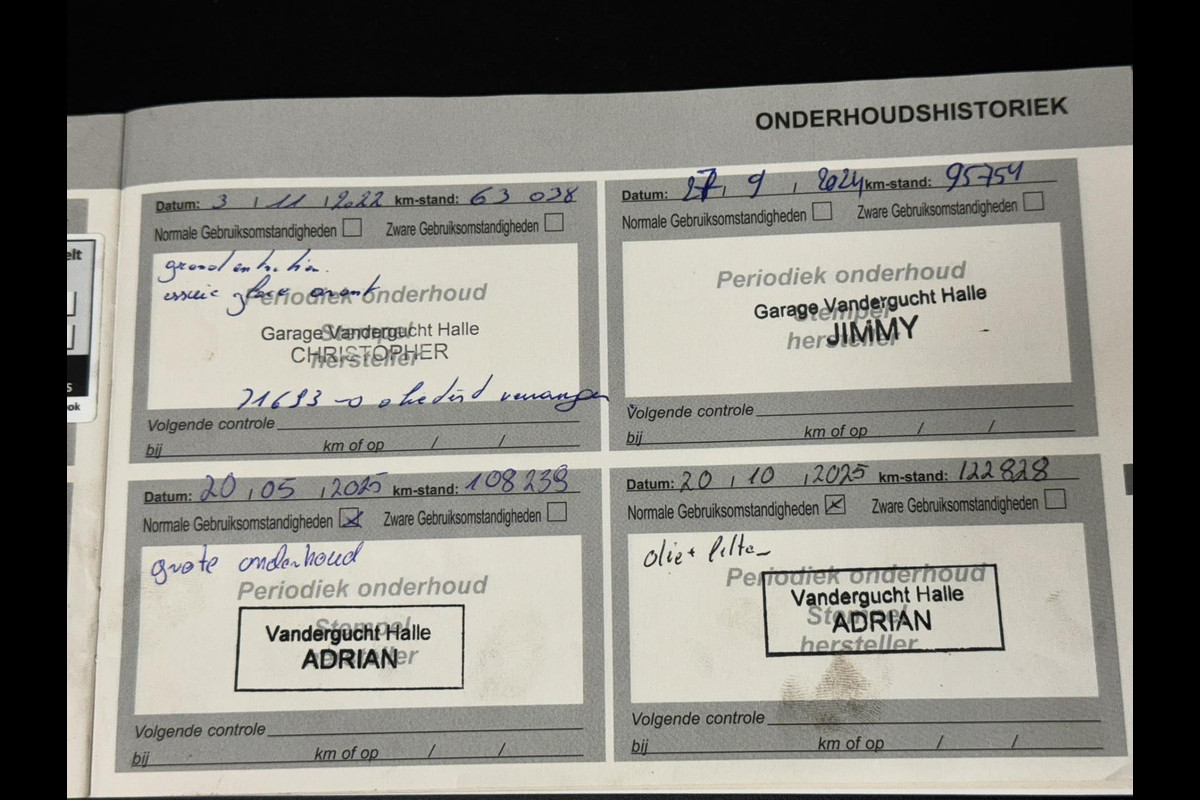 ONDERHOUDSHISTORIEK
Datum: 3 / 11 / 2022 km-stand: 63 038
Normale Gebruiksomstandigheden Zware Gebruiksomstandigheden
grand entretien
essuie glace avant
Periodiek onderhoud
Stempel
hersteller
Garage Vandergucht Halle
CHRISTOPHER
71693 → o
Volgende controle
bij km of op / /
Datum: 27 / 9 / 2024 km-stand: 95754
Normale Gebruiksomstandigheden Zware Gebruiksomstandigheden
Periodiek onderhoud
Stempel
hersteller
Garage Vandergucht Halle
JIMMY
Volgende controle
bij km of op / /
Datum: 20 / 05 / 2025 km-stand: 108239
Normale Gebruiksomstandigheden Zware Gebruiksomstandigheden
grote onderhoud
Periodiek onderhoud
Stempel
hersteller
Vandergucht Halle
ADRIAN
Volgende controle
bij km of op / /
Datum: 20 / 10 / 2025 km-stand: 122828
Normale Gebruiksomstandigheden Zware Gebruiksomstandigheden
olie + filter
Periodiek onderhoud
Stempel
hersteller
Vandergucht Halle
ADRIAN
Volgende controle
bij km of op / /